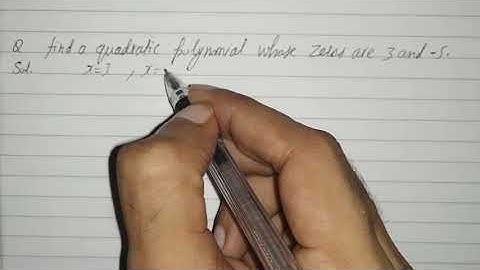 Q find a quadratic polynomial whose zeros are 3 and -5.
Sol. x=3 , x=